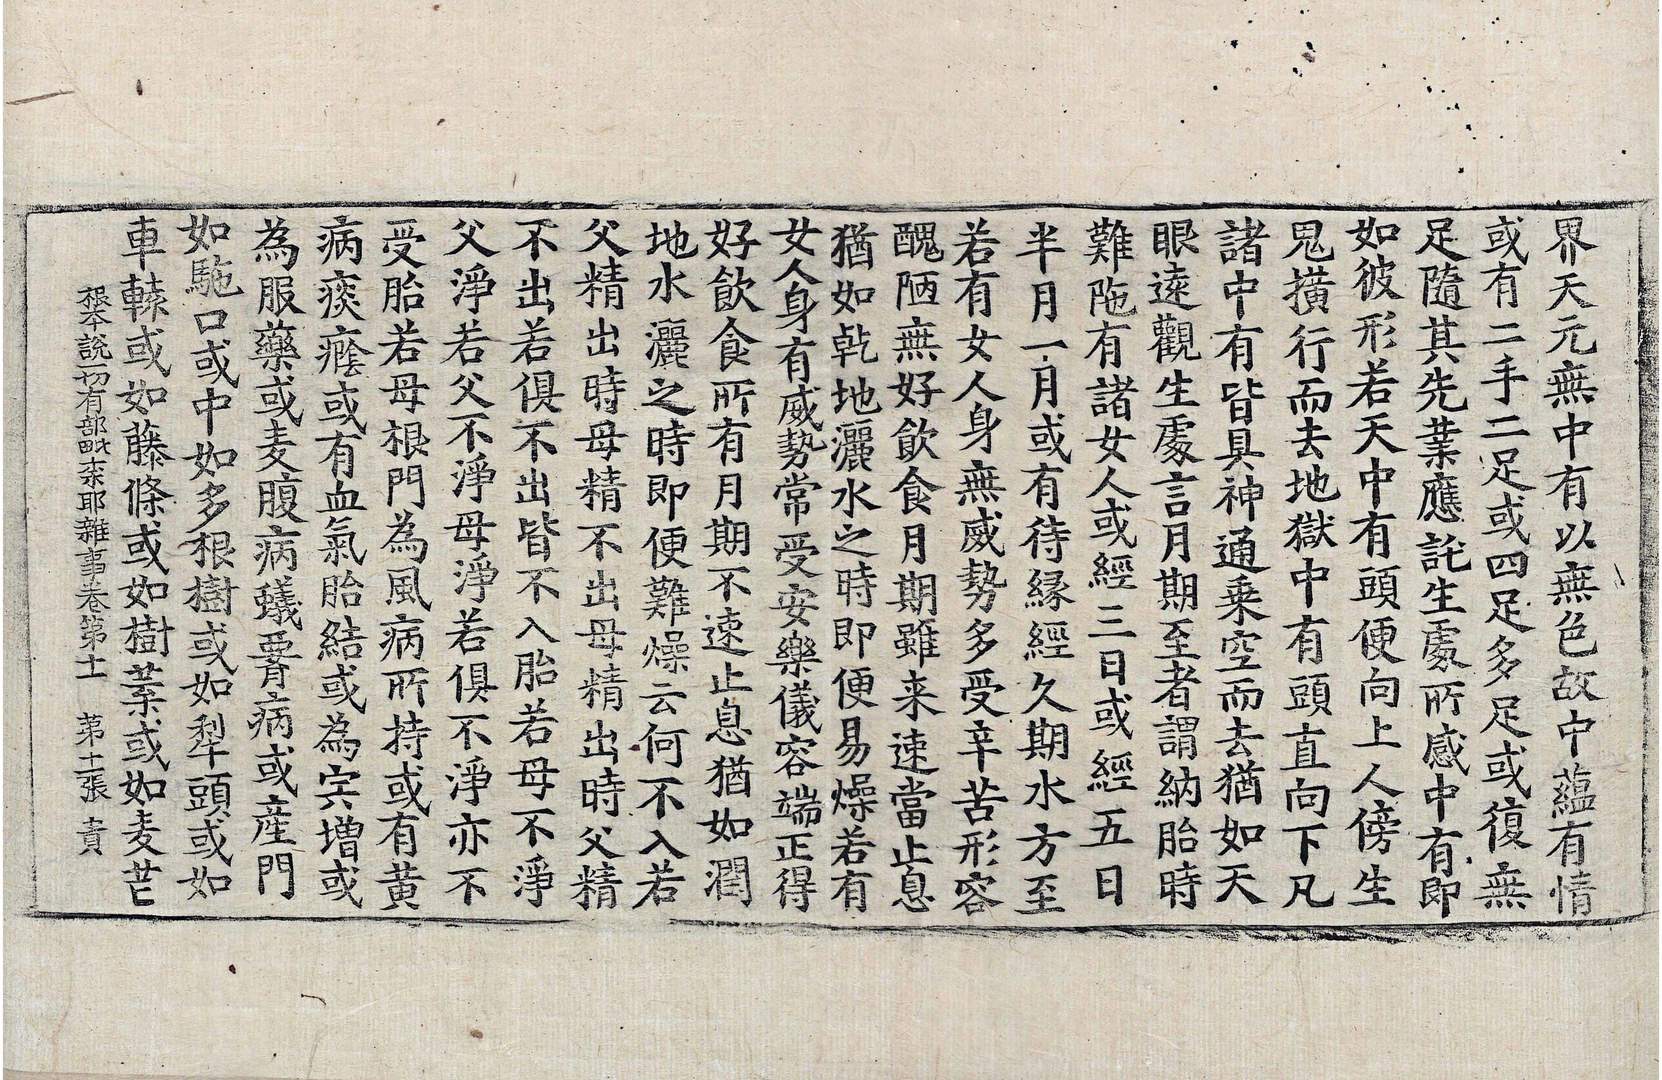 界天元無中有以無色故中蘊有情
或有二手二足或四足多足或復無
足隨其先業應託生處所感中有即
如彼形若天中有頭便向上人傍生
鬼橫行而去地獄中有頭直向下凡
諸中有皆具神通乗空而去猶如天
眼遠觀生處言月期至者謂納胎時
難陁有諸女人或經三日或經五日
半月一月或有待緣經久期水方至
若有女人身無威勢多受辛苦形容
醜陋無好飲食月期雖来速當止息
猶如乾地灑水之時即便易燥若有
女人身有威勢常受安樂儀容端正得
好飲食所有月期不速止息猶如潤
地水灑之時即便難燥云何不入若
父精出時母精不出母精出時父精
不出若俱不出皆不入胎若母不淨
父淨若父不淨母淨若俱不淨亦不
受胎若母根門為風病所持或有黃
病痰癊或有血氣胎結或為宍增或
為服藥或麦腹病蟻𦝫病或産門
如駞口或中如多根樹或如犁頭或如
車轅或如藤條或如樹葉或如麦芒
根本說一切有部毗奈耶雜事卷第十一 第十一張 責